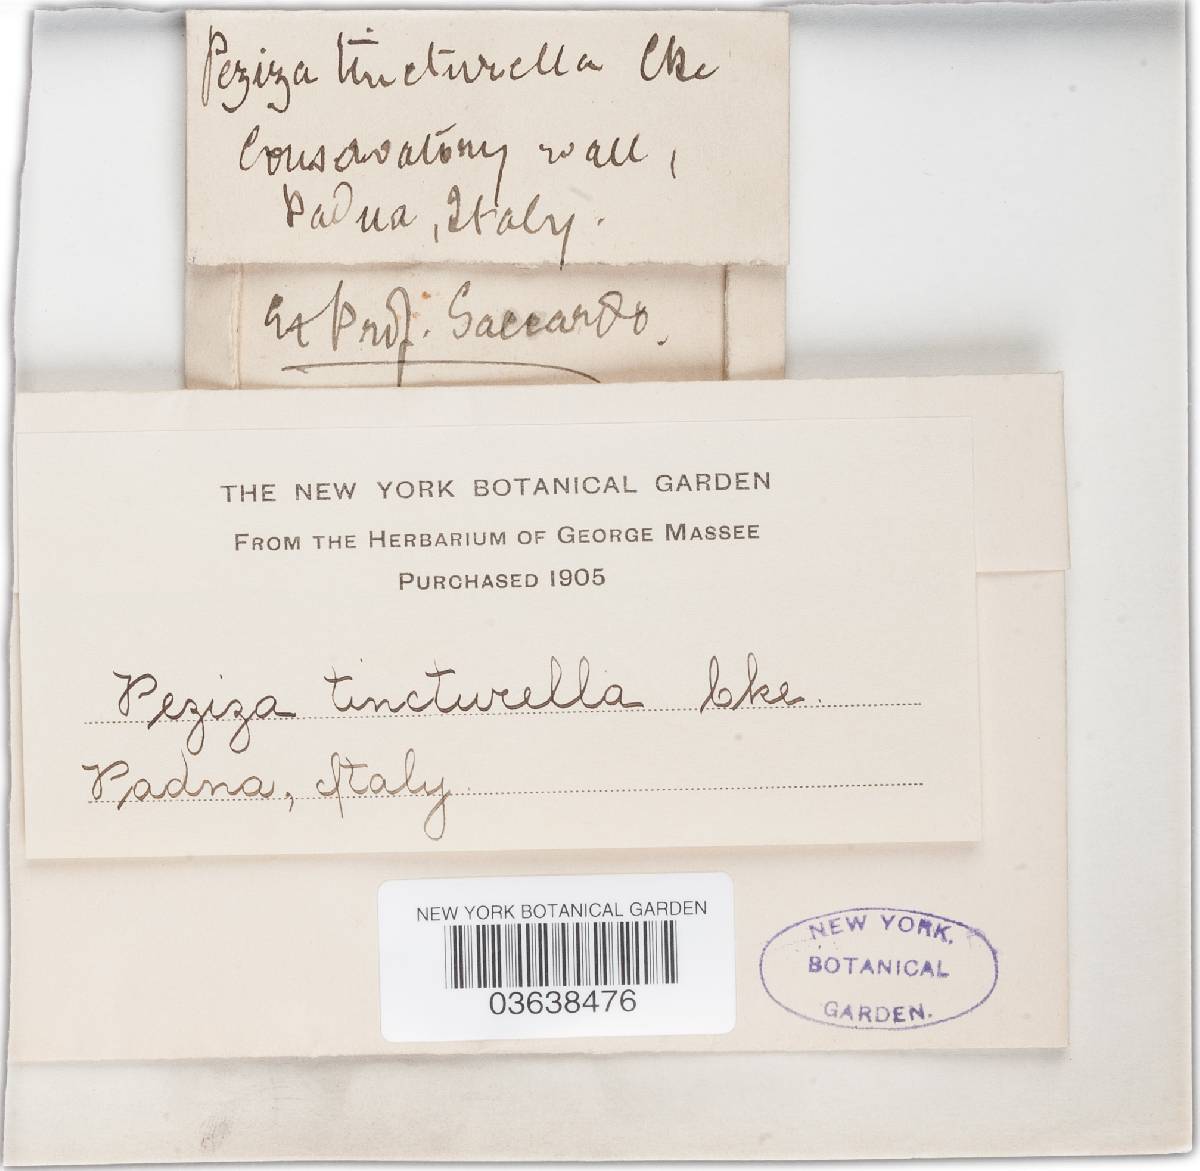 Peziza tincturella Cke
Conservatory wall,
Padua, Italy.
Ex Prof. Saccardo.
THE NEW YORK BOTANICAL GARDEN
FROM THE HERBARIUM OF GEORGE MASSEE
PURCHASED 1905
Peziza tincturella Cke.
Padna, Italy
NEW YORK BOTANICAL GARDEN
03638476
NEW YORK.
BOTANICAL
GARDEN.